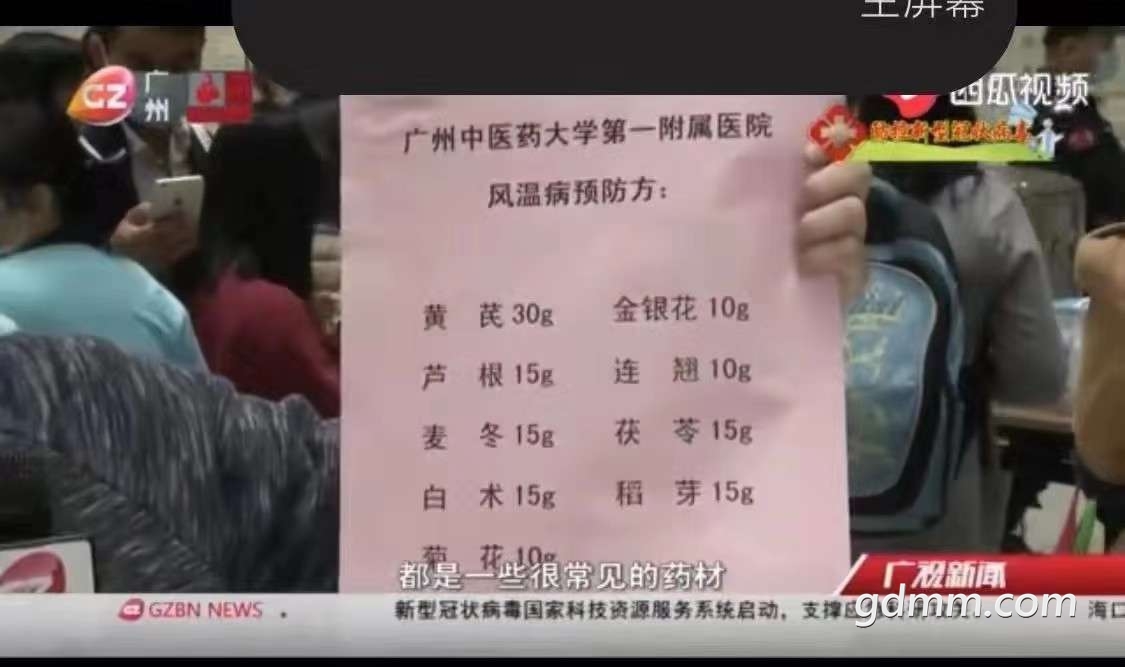 主屏幕
GZ 广州
西瓜视频
防控新型冠状病毒
广州中医药大学第一附属医院
风温病预防方：
黄 芪 30g 金银花 10g
芦 根 15g 连 翘 10g
麦 冬 15g 茯 苓 15g
白 术 15g 稻 芽 15g
菊 花 10g
都是一些很常见的药材
广视新闻
GZBN NEWS 新型冠状病毒国家科技资源服务系统启动，支撑应 海口
gdmm.com